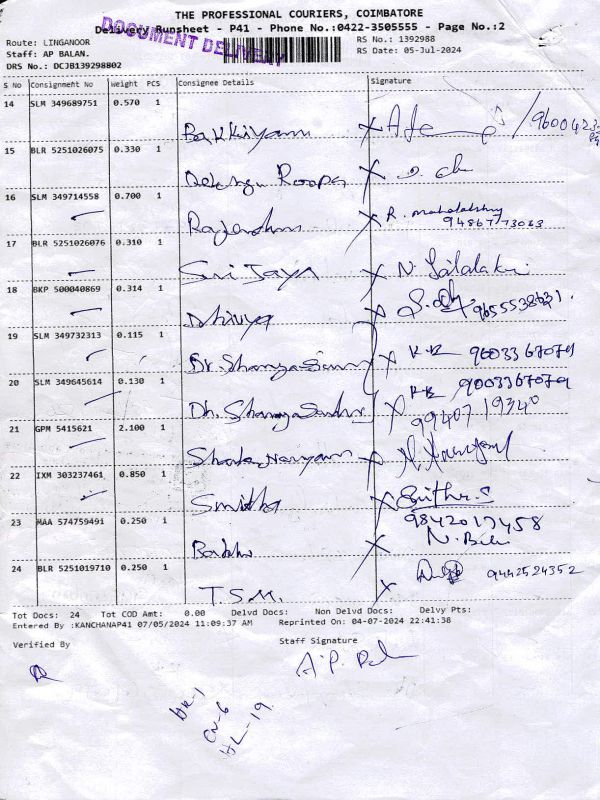 THE PROFESSIONAL COURIERS, COIMBATORE
Delivery Runsheet - P41 - Phone No.:0422-3505555 - Page No.:2
DOCUMENT DELIVERY
Route: LINGANOOR RS No.: 1392988
Staff: AP BALAN. RS Date: 05-Jul-2024
DRS No.: DCJB139298802
S No Consignment No Weight PCS Consignee Details Signature
14 SLM 349689751 0.570 1
Bakkiyam
15 BLR 5251026075 0.330 1
Roopa
16 SLM 349714558 0.700 1
R. mahalakshmy
Rajendran 9486773063
17 BLR 5251026076 0.310 1
Sri Jaya
18 BKP 500040869 0.314 1
Dhivya
19 SLM 349732313 0.115 1
KB 9003367079
20 SLM 349645614 0.130 1
KB 9003367079
9940719340
21 GPM 5415621 2.100 1
22 IXM 303237461 0.850 1
Smitha
23 MAA 574759491 0.250 1
9842017458
24 BLR 5251019710 0.250 1
9442524352
T.S.M.
Tot Docs: 24 Tot COD Amt: 0.00 Delvd Docs: Non Delvd Docs: Delvy Pts:
Entered By :KANCHANAP41 07/05/2024 11:09:37 AM Reprinted On: 04-07-2024 22:41:38
Verified By Staff Signature
HR-1
CV-6
HL-19